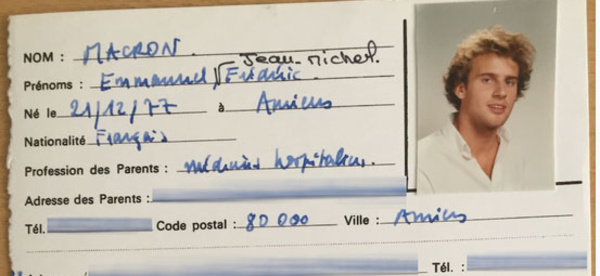 NOM : MACRON
Jean-Michel.
Prénoms : Emmanuel Frédéric
Né le 21/12/77 à Amiens
Nationalité Français
Profession des Parents : médecins hospitaliers.
Adresse des Parents :
Tél. Code postal : 80 000 Ville : Amiens
Tél. :